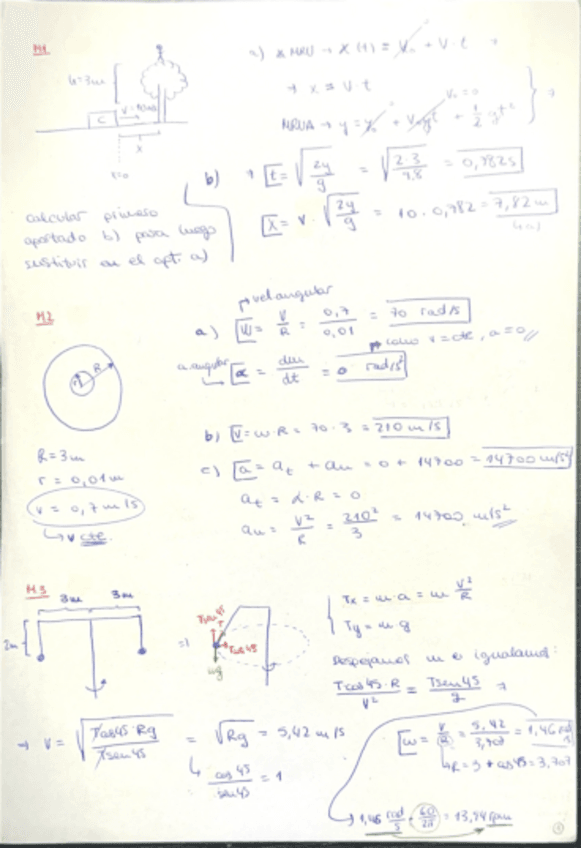 M1
h=3m
C
V=10m/s
X
t=0
a) * MRU → X(t) = X₀ + V·t →
→ x = V·t
V₀ = 0
MRUA → y = y₀ + V₀yt + 1/2 gt²
b) → t = √(2y/g) = √(2·3/9,8) = 0,782s
X = V·√(2y/g) = 10·0,782 = 7,82 m
calcular primero
apartado b) para luego
sustituir en el apt. a)
M2
R
r
R=3m
r = 0,01m
v = 0,7m/s
↳ v cte.
vel angular
a) W = V/R = 0,7/0,01 = 70 rad/s
como v=cte, a=0
a. angular
α = dw/dt = 0 rad/s²
b) V=w·R = 70·3 = 210 m/s
c) a = at + an = 0 + 14700 = 14700 m/s²
at = α·R = 0
an = V²/R = 210²/3 = 14700 m/s²
M3
3m 3m
2m
⇒
Tsen45
T
Tcos45
mg
Tx = m·a = m V²/R
Ty = m·g
Despejamos m e igualamos:
Tcos45·R/V² = Tsen45/g →
→ V = √(Tcos45·Rg/Tsen45) = √Rg = 5,42 m/s
cos 45/sen45 = 1
w = V/R = 5,42/3,707 = 1,46 rad/s
↳R = 3 + cos45 = 3,707
→ 1,46 rad/s · 60/2π = 13,94 rpm
1